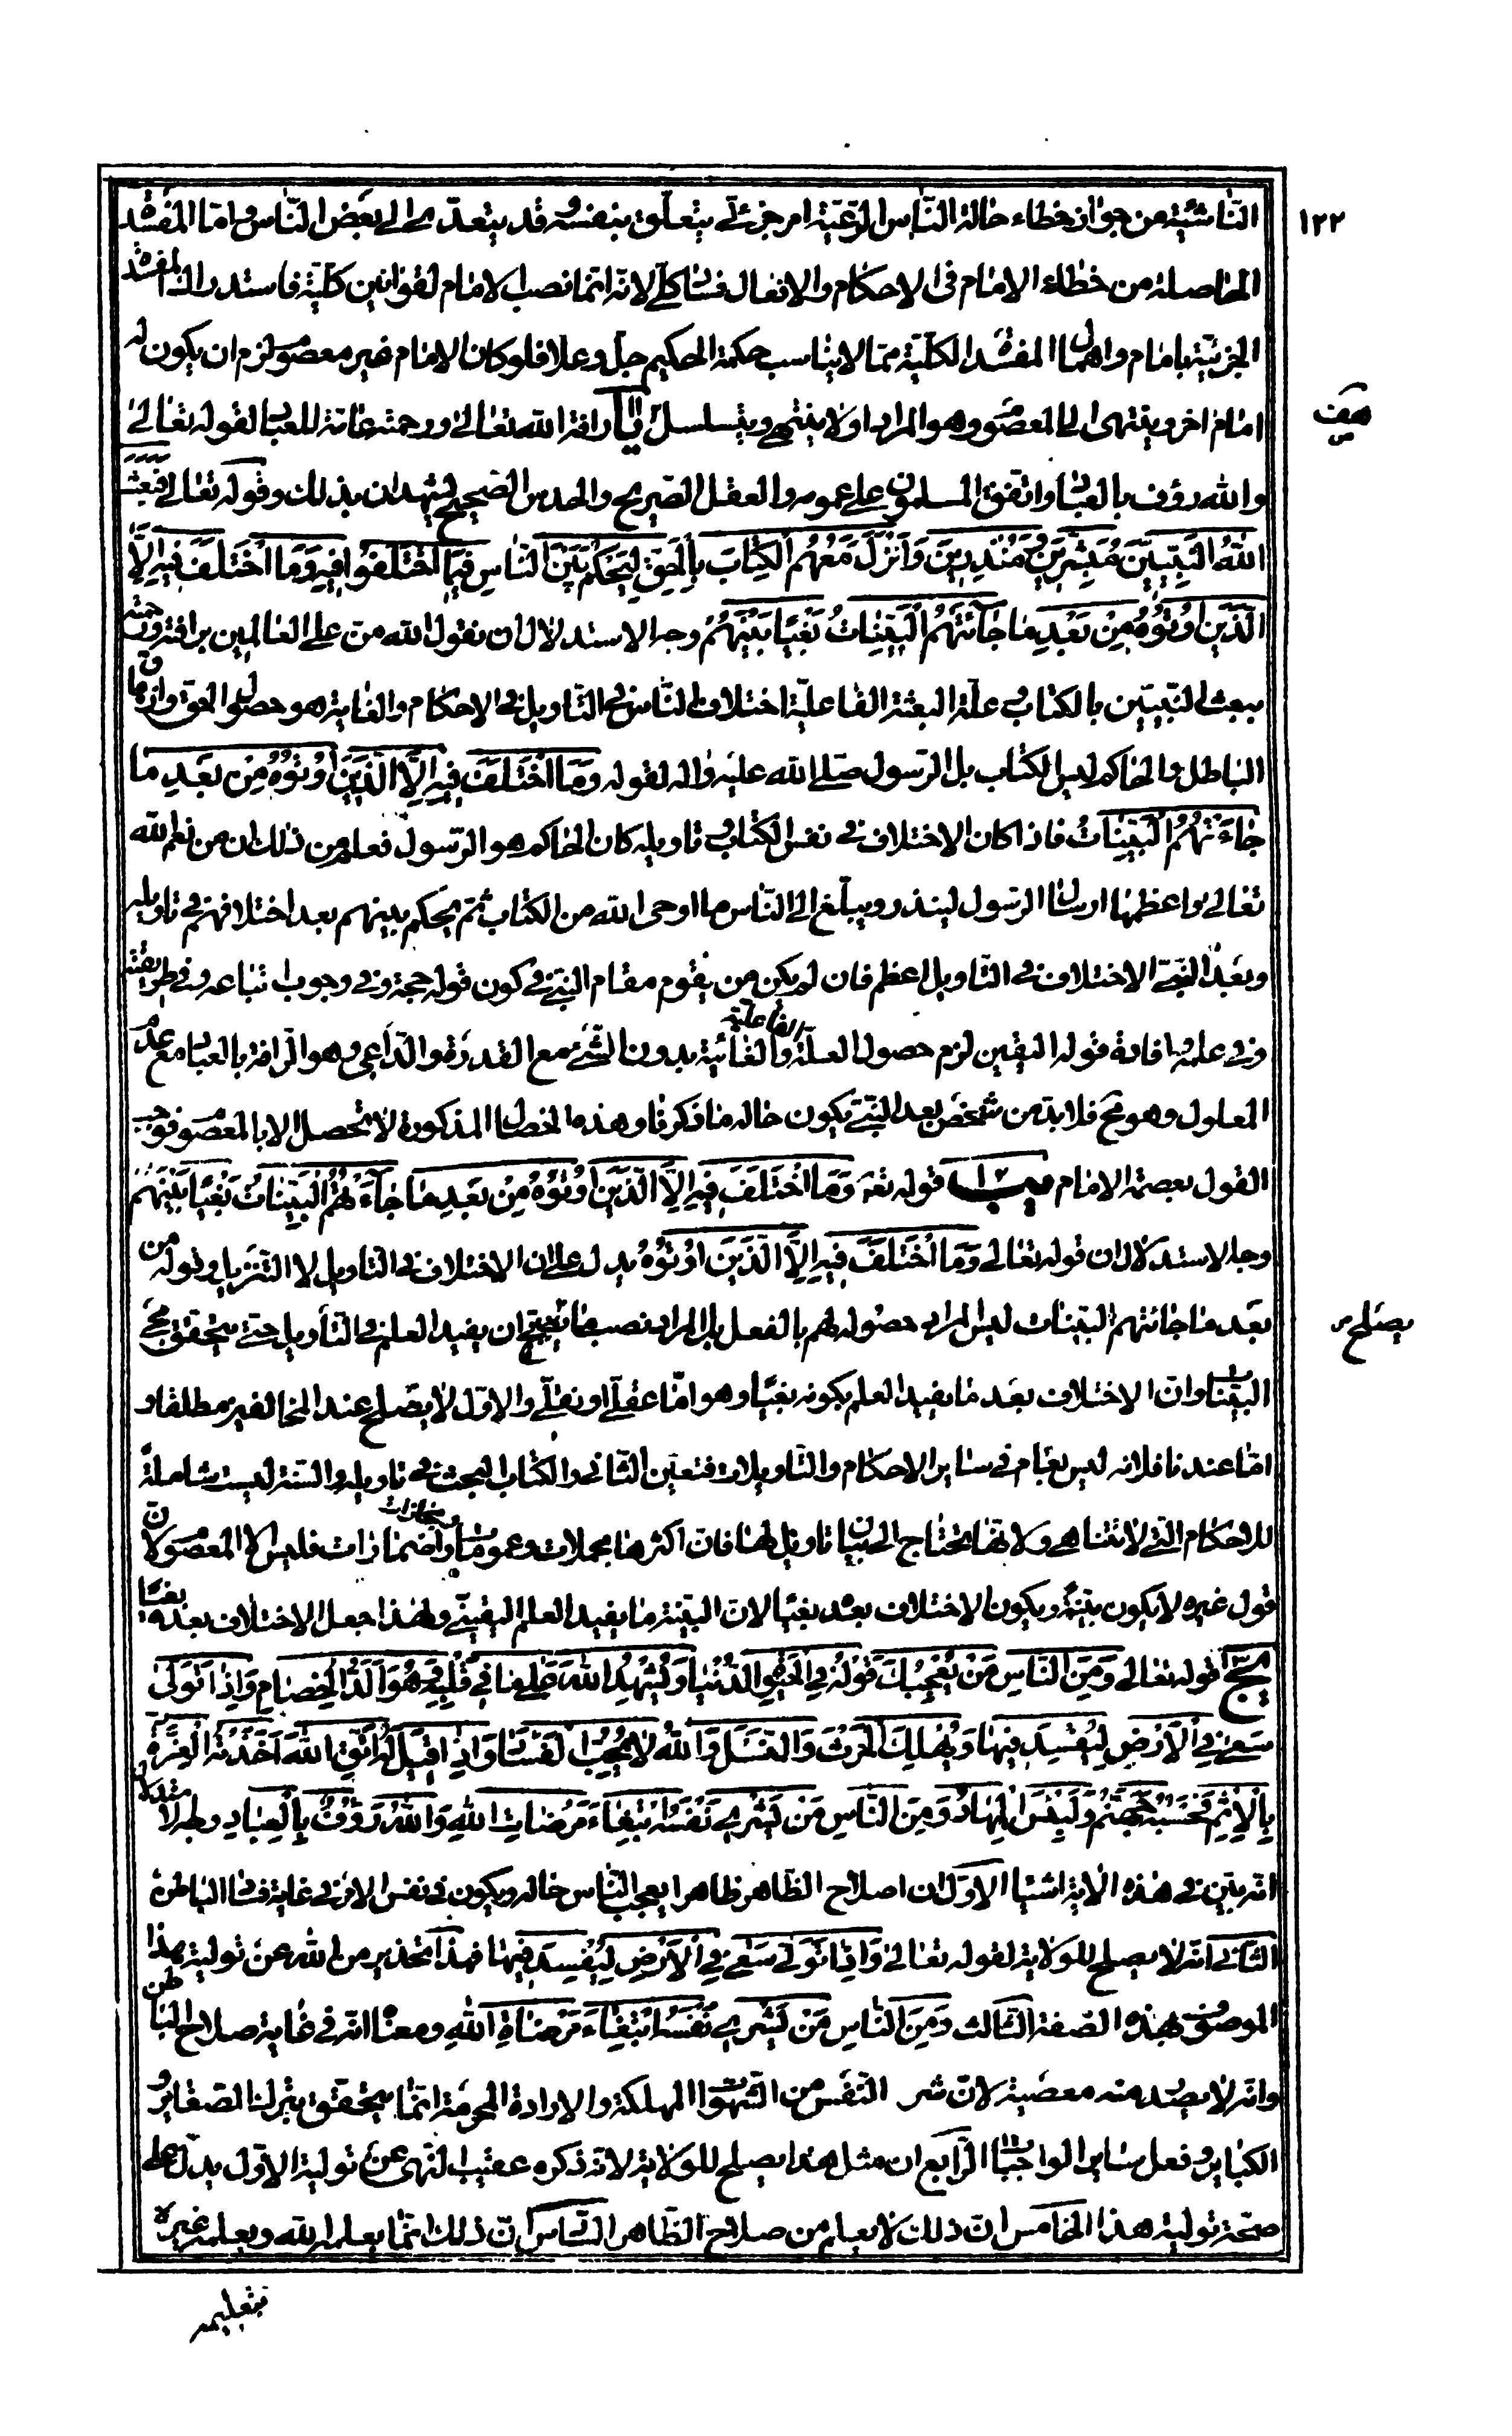 ١٢٢
النّاشئية من جواز خطاء خالة النّاس الرّعيّة امر جزئيّ يتعلّق بنفسه وقد يتعدّى الى بعض النّاس وامّا المفسدة
الحاصلة من خطاء الامام فى الاحكام والافعال فساد كلّى لانّه انّما نصب الامام لقوانين كليّة فاستدراك المفسدة
الجزئيّة بامام واهمال المفسدة الكليّة ممّا لا يناسب حكمة الحكيم جلّ وعلا فلو كان الامام غير معصوم لزم ان يكون له
امام اخر وينتهى الى المعصوم وهو المراد او لا ينتهى ويتسلسل يا رافة الله تعالى ورحمته عامّة للعباد لقوله تعالى
والله رؤف بالعباد واتفق المسلمون على عمومه والعقل الصّريح والحدس الصّحيح يشهدان بذلك وقوله تعالى فبعث
اللهُ النَّبِيّينَ مُبَشِّرينَ ومُنْذِرينَ وَاَنْزَلَ مَعَهُمُ الْكِتابَ بِالْحَقِّ لِيَحْكُمَ بَيْنَ النّاسِ فيمَا اخْتَلَفُوا فيهِ وَمَا اخْتَلَفَ فيهِ اِلّا
الَّذينَ اُوتُوهُ مِنْ بَعْدِ ما جائَتْهُمُ الْبَيِّناتُ بَغْيًا بَيْنَهُمْ وجه الاستدلال ان نقول الله منّ على العالمين برافته ورحمته
ببعث النّبيّين بالكتاب علة البعثة الفاعليّة اختلاف النّاس فى التّاويل فى الاحكام والغاية هو حصول الحق وازهاق
الباطل والحاكم ليس الكتاب بل الرّسول صلّى الله عليه واله لقوله وَمَا اخْتَلَفَ فيهِ اِلَّا الَّذينَ اُوتُوهُ مِنْ بَعْدِ ما
جاءَتْهُمُ الْبَيِّناتُ فاذا كان الاختلاف فى نفس الكتاب وتاويله كان الحاكم هو الرّسول فعلم من ذلك ان من نعم الله
تعالى واعظمها ارسال الرّسول لينذر ويبلّغ الى النّاس ما اوحى الله من الكتاب ثمّ يحكم بينهم بعد اختلافهم فى تاويله
وبعد النّبىّ الاختلاف فى التّاويل اعظم فان لم يكن من يقوم مقام النّبىّ فى كون قوله حجة وفى وجوب اتباعه وفى طريقته
وفى علمه وافادة قوله اليقين لزم حصول العلّة الفاعليّة والغائية بدون الشّىء مع القدرة والدّاعى وهو الرّافة بالعباد مع عدم
المعلول وهو مح فلا بدّ من شخص بعد النّبىّ يكون حاله ما ذكرنا وهذه الخصال المذكورة لا تحصل الا بالمعصوم فوجب
القول بعصمة الامام يب قوله تعه وَمَا اخْتَلَفَ فيهِ اِلَّا الَّذينَ اُوتُوهُ مِنْ بَعْدِ ما جاءَتْهُمُ الْبَيِّناتُ بَغْيًا بَيْنَهُمْ
وجه الاستدلال ان قوله تعالى وَمَا اخْتَلَفَ فيهِ اِلَّا الَّذينَ اُوتُوهُ يدل على ان الاختلاف فى التاويل لا التنزيل وقوله من
بعد ما جائتهم البيّنات ليس المراد حصوله لهم بالفعل بل المراد نصب ما يصلح ان يفيد العلم فى التّأويل حتى يتحقق مجى
البيّنات وانّ الاختلاف بعد ما يفيد العلم يكونه بغيًا وهو امّا عقلّى او نقلّى والاوّل لا يصلح عند المخالفين مطلقا و
امّا عندنا فلانه ليس بعامّ فى سائر الاحكام والتّاويلات فتعيّن الثّانى والكتاب البحث فى تاويله والسّنة ليست شاملة
للاحكام الّتى لا تتناهى ولانّها تحتاج الى بيان تاويل لها فانّ اكثرها مجملات وعمومات ومجازات واضمارات فليس الا المعصوم لانّ
قول غيره لا يكون بيّنة ويكون الاختلاف بعده بغيًا لانّ البيّنة ما يفيد العلم اليقينىّ ولهذا جعل الاختلاف بعده بغيًا
يج قوله تعالى وَمِنَ النّاسِ مَنْ يُعْجِبُكَ قَوْلُهُ فِى الْحَيوةِ الدُّنْيا وَيُشْهِدُ اللهَ عَلى ما فى قَلْبِهِ وَهُوَ اَلَدُّ الْخِصامِ وَاِذا تَوَلّى
سَعى فِى الْاَرْضِ لِيُفْسِدَ فيها وَيُهْلِكَ الْحَرْثَ وَالنَّسْلَ وَاللهُ لا يُحِبُّ الْفَسادَ وَاِذا قيلَ لَهُ اتَّقِ اللهَ اَخَذَتْهُ الْعِزَّةُ
بِالْاِثْمِ فَحَسْبُهُ جَهَنَّمُ وَلَبِئْسَ الْمِهادُ وَمِنَ النّاسِ مَنْ يَشْرى نَفْسَهُ ابْتِغاءَ مَرْضاتِ اللهِ وَاللهُ رَؤُفٌ بِالْعِبادِ وجه الاستدلال
انه بيّن فى هذه الاية اشياء الاوّل ان اصلاح الظّاهر ظاهرا يعجب النّاس حاله ويكون فى نفس الامر فى غاية فساد الباطن
الثّانى انه لا يصلح للولاية لقوله تعالى وَاِذا تَوَلّى سَعى فِى الْاَرْضِ لِيُفْسِدَ فيها فهذا تحذير من الله عن تولية هذا
الموصوف بهذه الصّفة الثّالث وَمِنَ النّاسِ مَنْ يَشْرى نَفْسَهُ ابْتِغاءَ مَرْضاةِ اللهِ ومعناه انّه فى غاية صلاح الباطن
وانه لا يصدر منه معصية لانّ شر النّفس من الشّهوات المهلكة والارادة المحرّمة انّما يتحقق بترك الصّغاير و
الكباير وفعل ساير الواجبات الرّابع ان مثل هذا يصلح للولاية لانّه ذكره عقيب النّهى عن تولية الاوّل يدلّ على
صحّة تولية هذا الخامس انّ ذلك لا يعلم من صلاح الظّاهر السّادس انّ ذلك انّما يعلمه الله ويعلمه غيره
هف
يصلح
بتعليمه